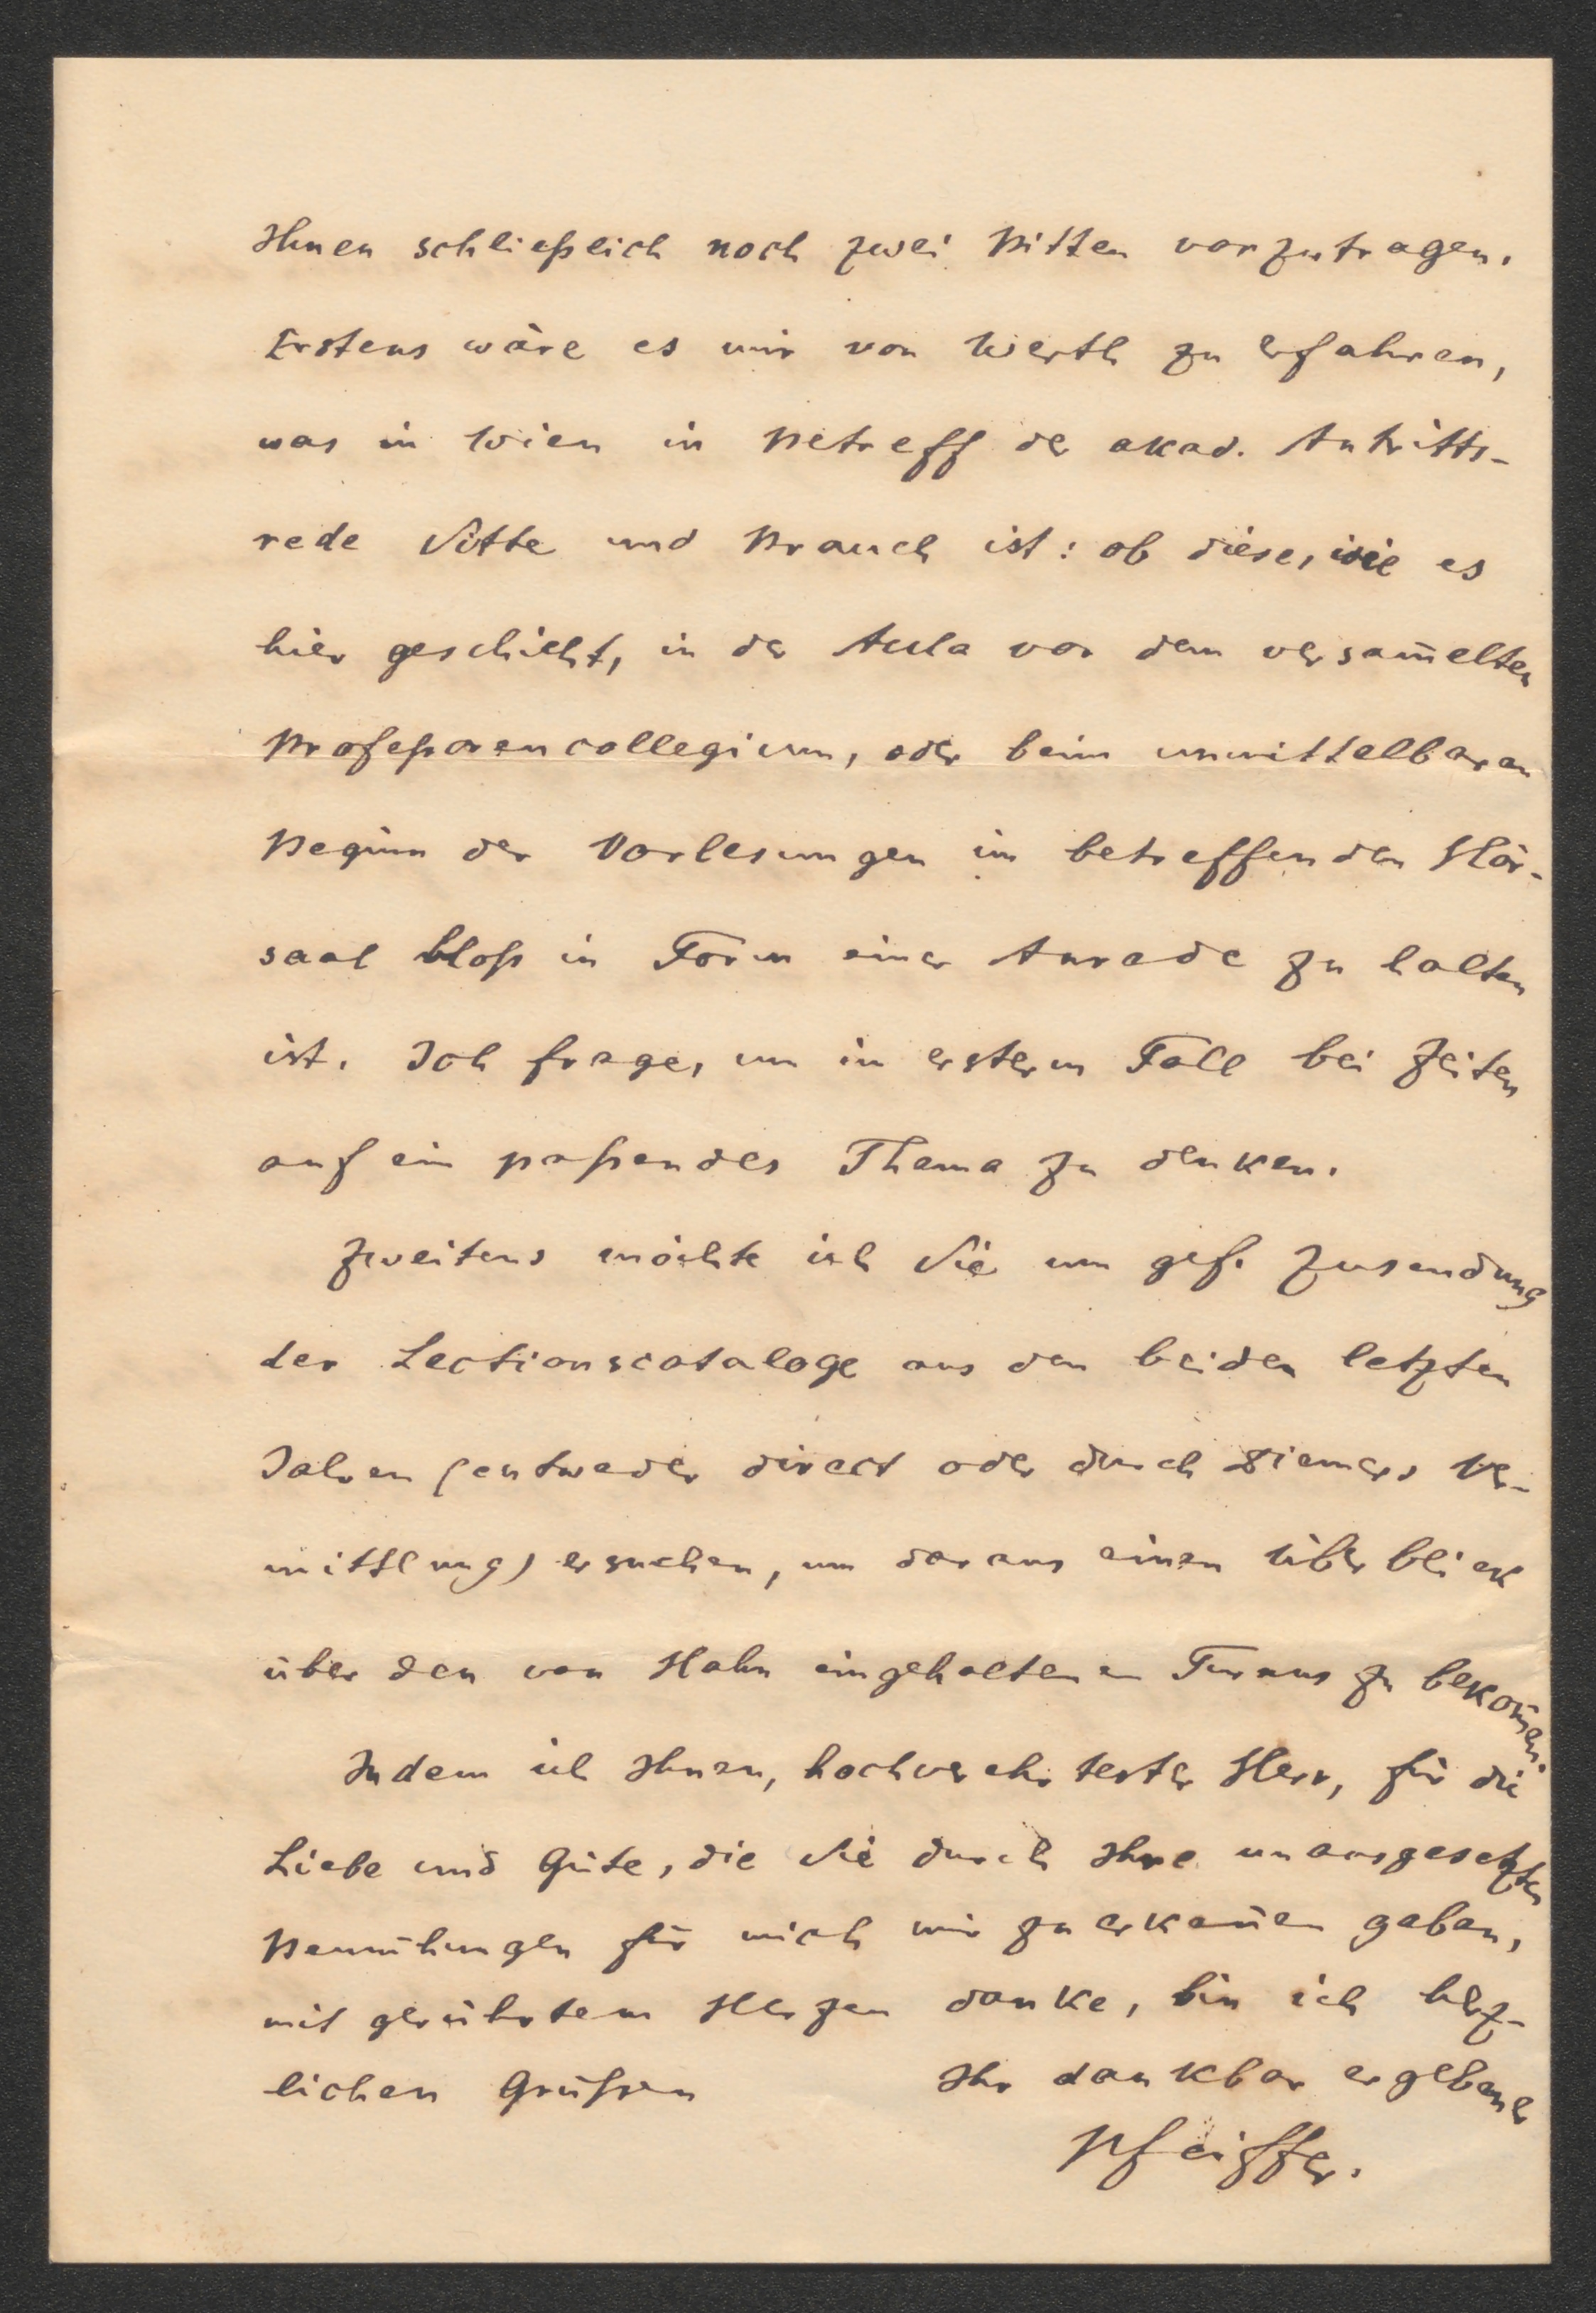 Ihnen schließlich noch zwei Bitten vorzutragen.
Erstens wäre es mir von Werth zu erfahren,
was in Wien in Betreff der akad. Antritts-
rede Sitte und Brauch ist: ob diese, wie es
hier geschieht, in der Aula vor dem versam̄elten
Profeßorencollegium, oder beim unmittelbaren
Beginn der Vorlesungen im betreffenden Hör-
saal bloß in Form einer Anrede zu halten
ist. Ich frage, um in ersterm Fall bei Zeiten
auf ein paßendes Thema zu denken.
Zweitens möchte ich Sie um gef. Zusendung
der Lectionscataloge aus den beiden letzten
Jahren (entweder direct oder durch Diemers Ver-
mittlung) ersuchen, um daraus einen Überblick
über den von Hahn eingehaltenen Turnus zu bekom̄en.
Indem ich Ihnen, hochverehrtester Herr, für die
Liebe und Güte, die Sie durch Ihre unausgesetzten
Bemühungen für mich mir zu erkeñen geben,
mit gerührtem Herzen danke, bin ich herz-
lichen Grüßen Ihr dankbar ergebener
Pfeiffer.